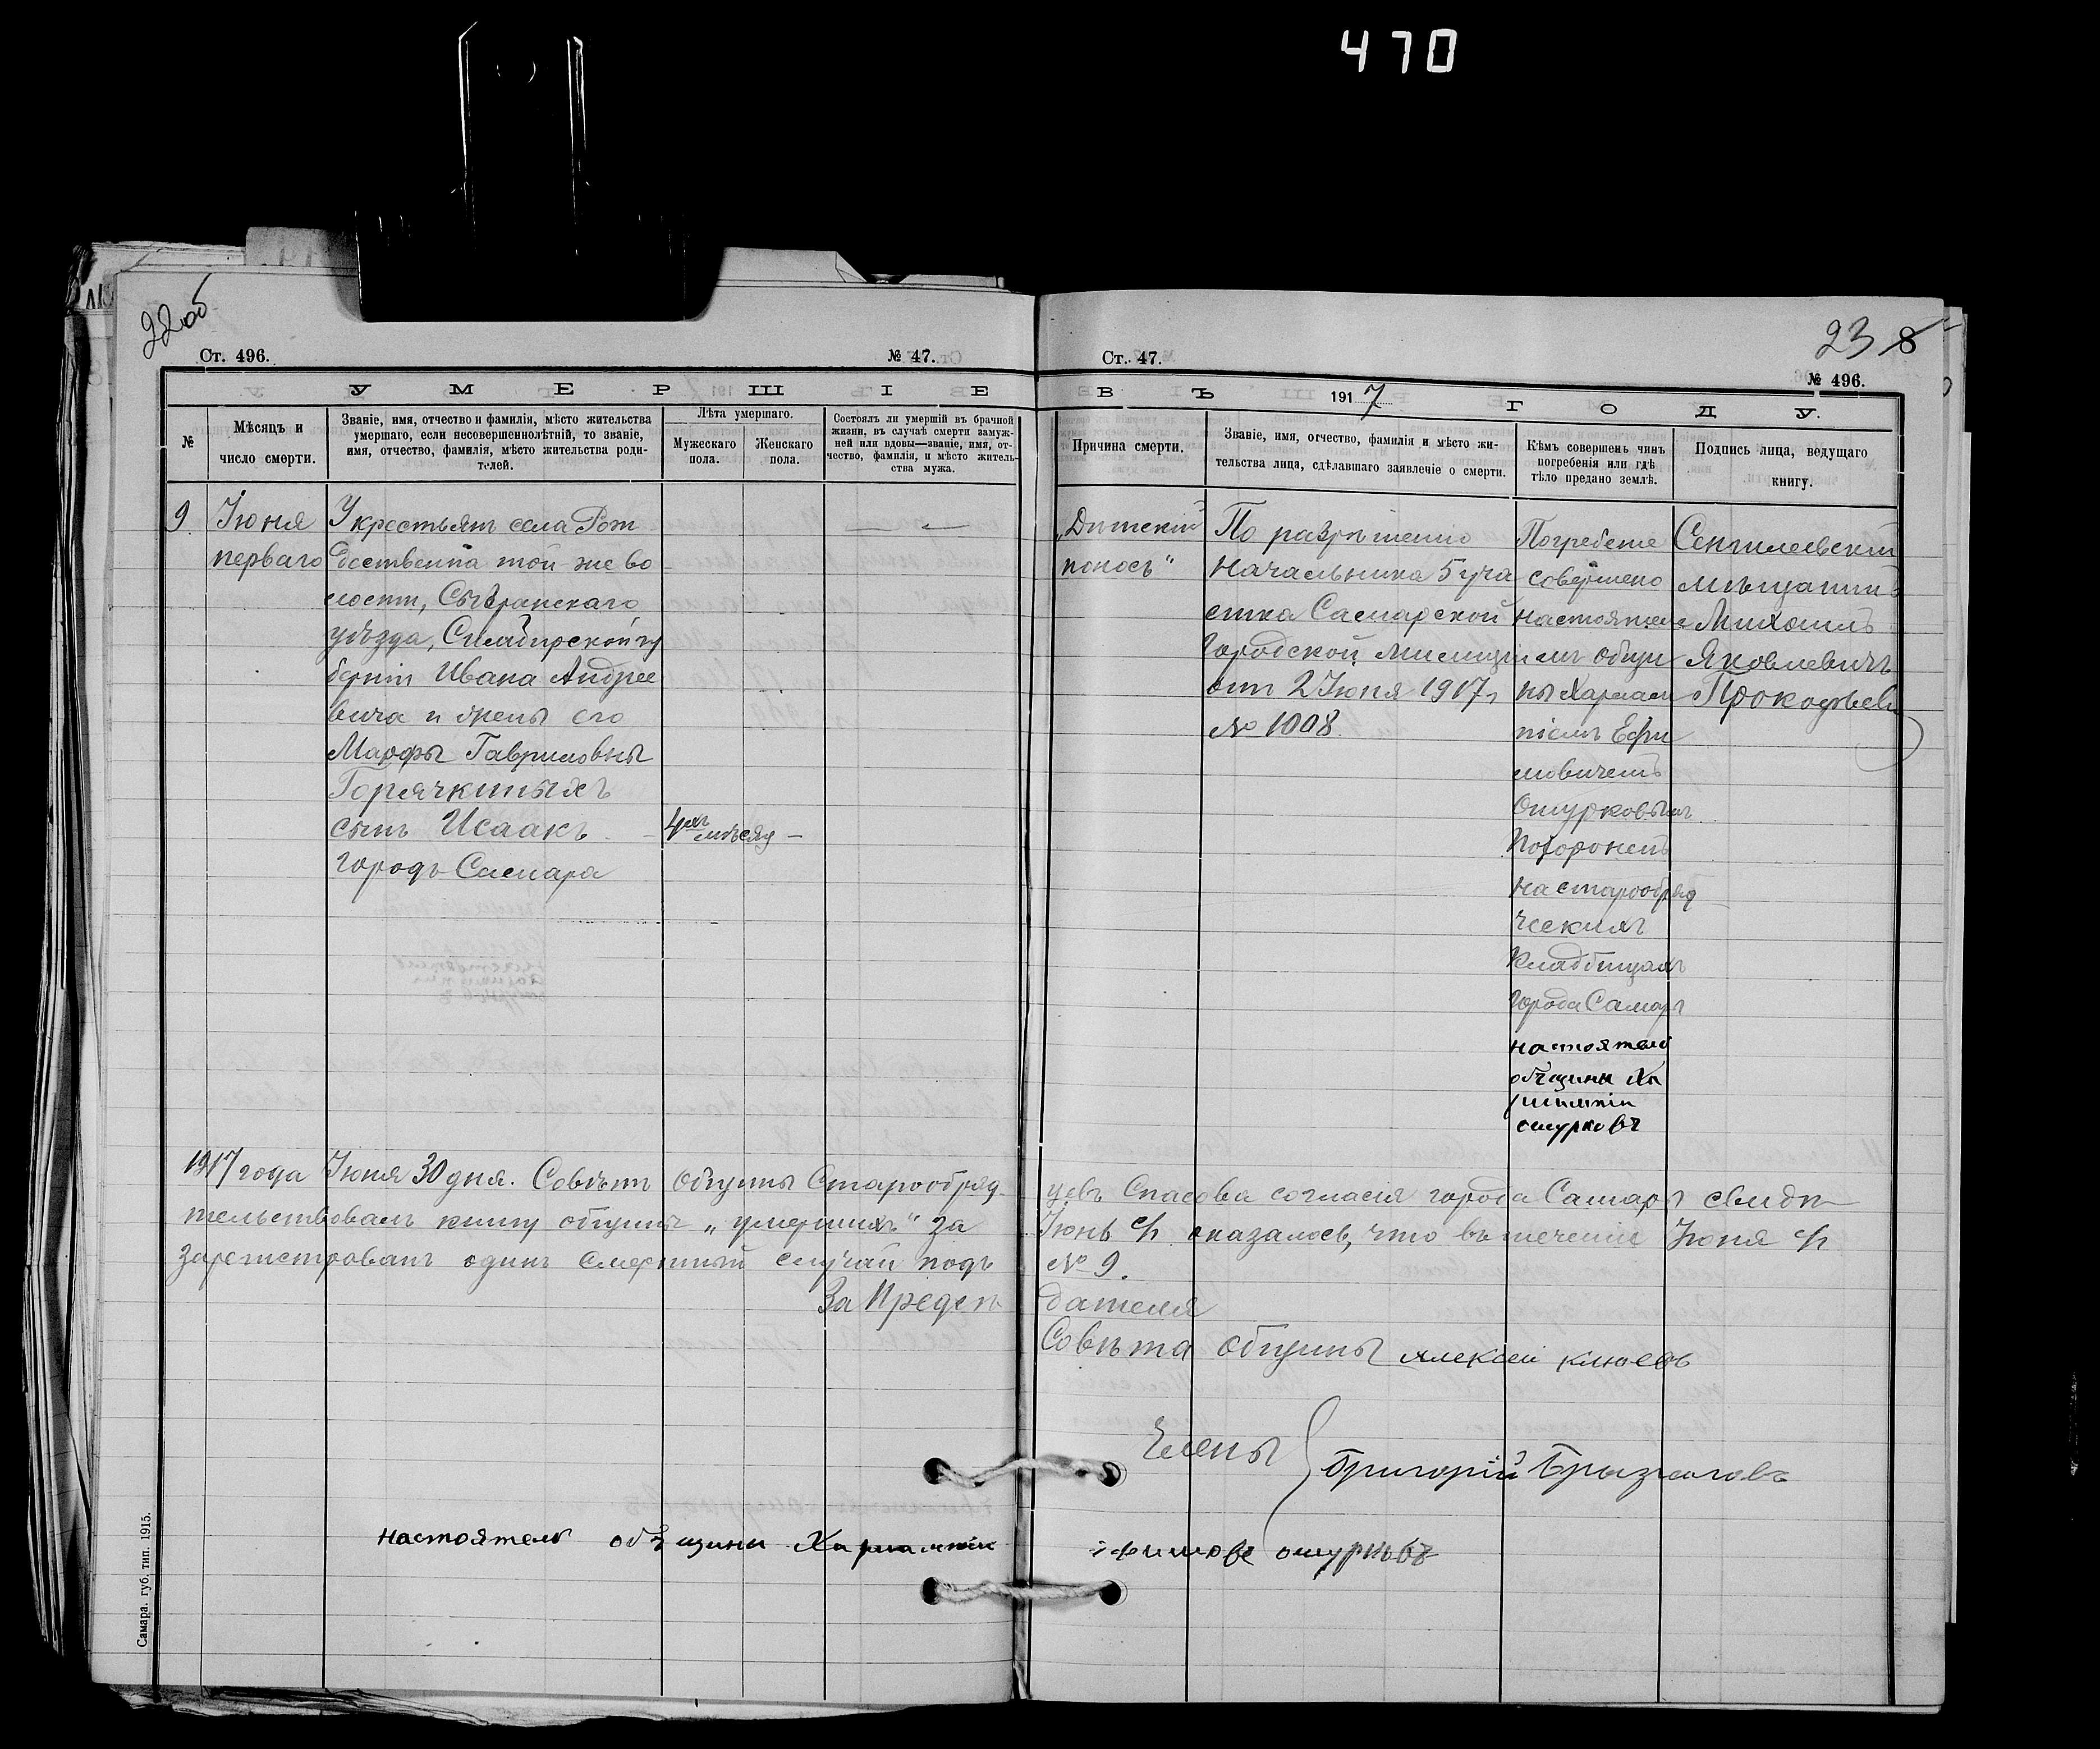 470
22об
23 8
Ст. 496.
№ 47.
Ст. 47.
№ 496.
УМЕРШІЕ
ВЪ 1917 ГОДУ.
№
Мѣсяцъ и
число смерти.
Званіе, имя, отчество и фамилія, мѣсто жительства
умершаго, если несовершеннолѣтній, то званіе,
имя, отчество, фамилія, мѣсто жительства роди-
телей.
Лѣта умершаго.
Мужескаго
пола.
Женскаго
пола.
Состоялъ ли умершій въ брачной
жизни, въ случаѣ смерти замуж-
ней или вдовы—званіе, имя, от-
чество, фамилія, и мѣсто житель-
ства мужа.
Причина смерти.
Званіе, имя, отчество, фамилія и мѣсто жи-
тельства лица, сдѣлавшаго заявленіе о смерти.
Кѣмъ совершенъ чинъ
погребенія или гдѣ
тѣло предано землѣ.
Подпись лица, ведущаго
книгу.
9.
Іюня
перваго
У крестьянъ села Рож
дествена той же во
лости, Сызранскаго
уѣзда, Симбирской гу
берніи Ивана Андрее
вича и жены его
Марфы Гавриловны
Горячкиныхъ
сынъ Исаакъ
городъ Самара
4хъ мѣсяц
„Дѣтскій
поносъ“
По разрѣшенію
Начальника 5 уча
стка Самарской
Городской милиціи
отъ 2 Іюня 1917 г
№ 1008.
Погребеніе
совершено
настоятеле
мъ общи
ны Харлам
піемъ Ефи
мовичемъ
Ошурковымъ
Похороненъ
на старообряд
ческихъ
Кладбищахъ
города Самары
настоятель
общины Ха
рлампіи
ошурковъ
Сенгилеевскій
мѣщанинъ
Михаилъ
Яковлевичъ
Прокофьевъ
1917 года Іюня 30 дня. Совѣтъ общины Старообряд
цевъ Спасова согласія города Самары свидѣ
тельствовалъ книгу общины „умершихъ“ за
Іюнь с/г оказалось, что въ теченіи Іюня с/г
зарегистрованъ одинъ смертный случай подъ
№ 9.
За Предсѣ
дателя
Совѣта общины Алексей клюевъ
Члены
Григорій
настоятель общины Харлампіи
ошурковъ
Самара. губ. тип. 1915.